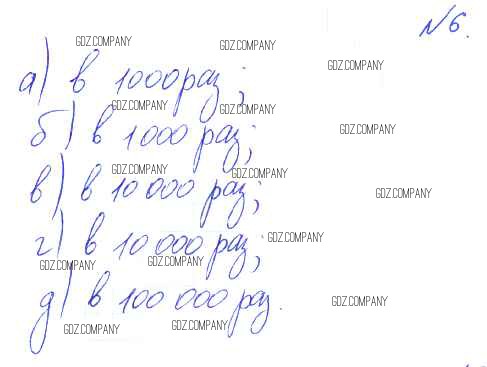 №6.
GDZ.COMPANY GDZ.COMPANY
GDZ.COMPANY
а) в 1000 раз;
GDZ.COMPANY GDZ.COMPANY
GDZ.COMPANY
б) в 1000 раз;
GDZ.COMPANY GDZ.COMPANY
GDZ.COMPANY
в) в 10 000 раз;
GDZ.COMPANY
г) в 10 000 раз;
GDZ.COMPANY GDZ.COMPANY
д) в 100 000 раз.
GDZ.COMPANY
GDZ.COMPANY GDZ.COMPANY